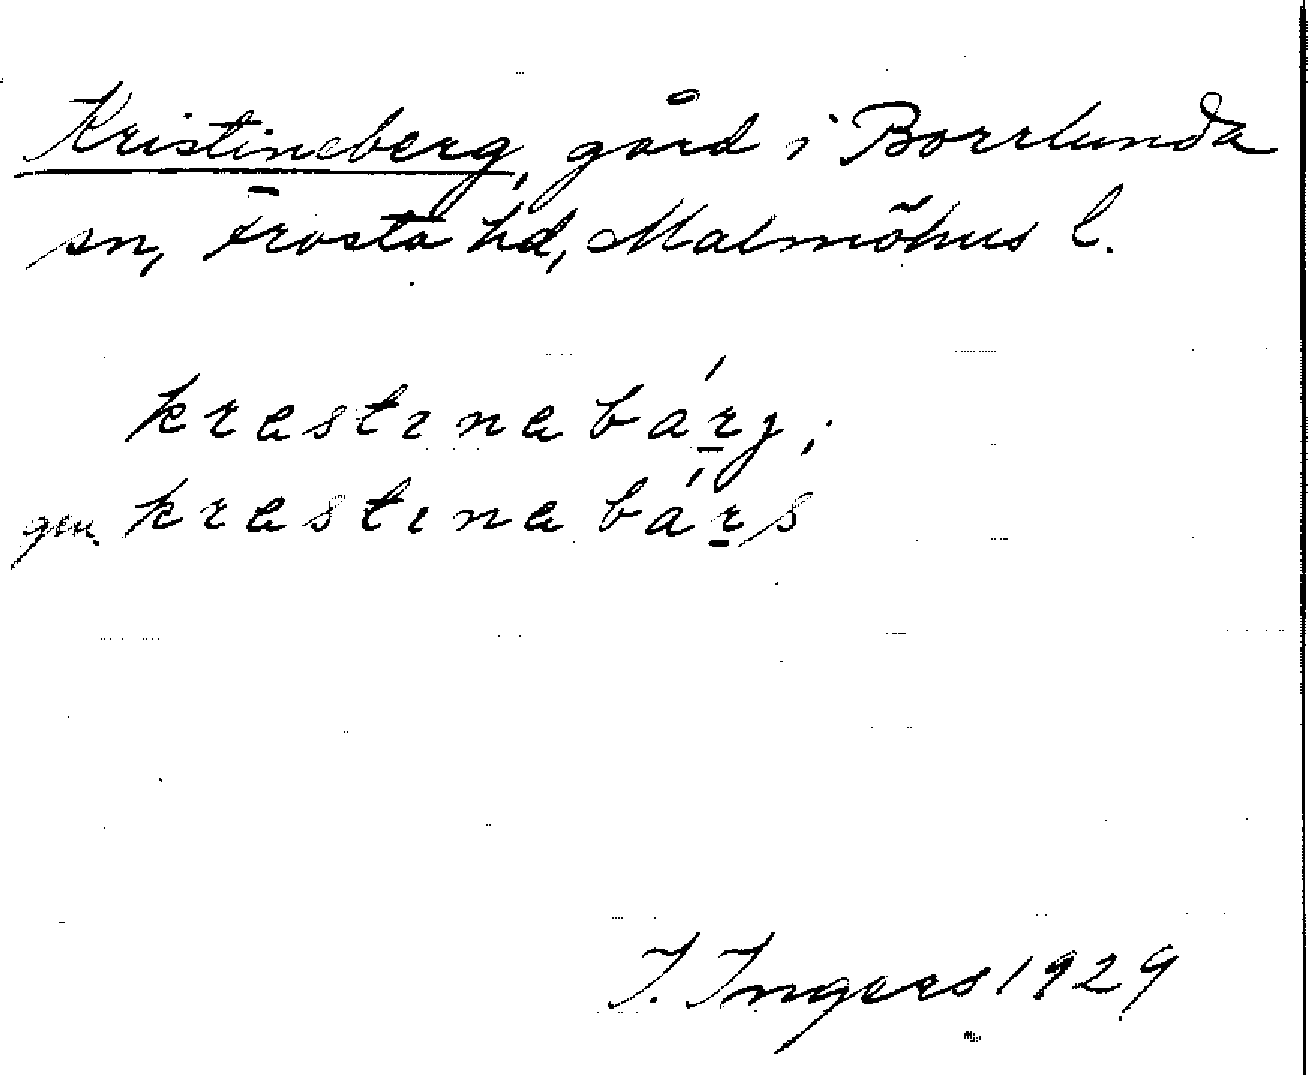 Kristineberg, gård i Borrlunda
sn, Frosta hd, Malmöhus l.
krestinebárj;
gen. krestinebárs
I. Ingers 1929